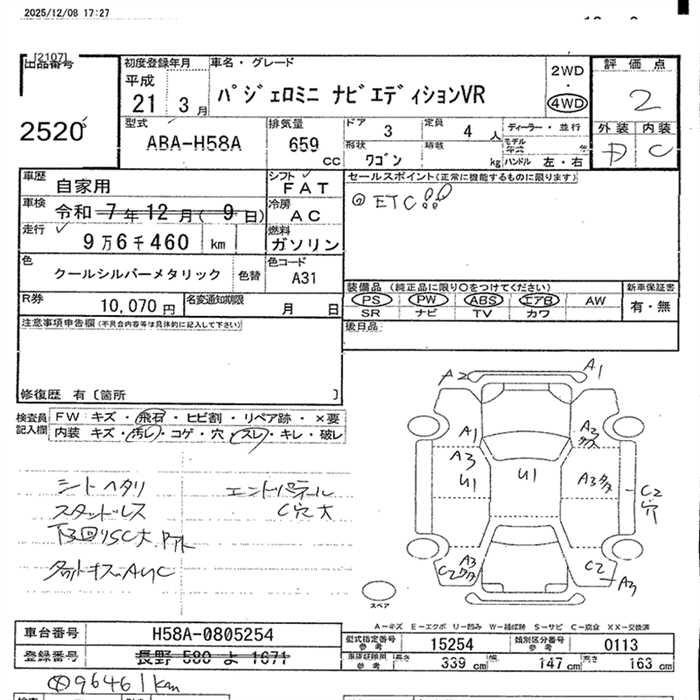 2025/12/08 17:27
[2107]
出品番号
2520
初度登録年月
平成
21 3 月
車名・グレード
パジェロミニ ナビエディションVR
2WD
・
4WD
評価点
2
外装 内装
D C
型式
ABA-H58A
排気量
659
CC
ドア
3
定員
4 人
形状
ワゴン
積載
kg
ディーラー・並行
モデル
年式
年
ハンドル 左・右
車歴
自家用
シフト
FAT
車検
令和 7年 12月( 9日)
冷房
AC
走行
9万6千460 km
燃料
ガソリン
色
クールシルバーメタリック
色替
色コード
A31
R券
10,070 円
名変通知期限
月 日
セールスポイント(正常に機能するものに限ります)
◎ ETC!!
装備品 (純正品に限り○をつけてください)
PS PW ABS エアB AW
SR ナビ TV カワ
新車保証書
有・無
後日品
注意事項申告欄(不具合内容等は具体的に記入して下さい)
修復歴 有〔箇所 〕
検査員
記入欄
FW キズ・飛石・ヒビ割・リペア跡・×要
内装 キズ・汚レ・コゲ・穴・スレ・キレ・破レ
シートヘタリ
スタッドレス
エンドパネル
C穴大
A2
A1
A1
A3
U1
U1
A3
C2
穴
A3
C2
C2
A3
スペア
A-キズ E-エクボ U-凹み W-補修跡 S-サビ C-腐食 XX-交換済
車台番号
H58A-0805254
登録番号
長野 580 よ 1671
型式指定番号
参考
15254
類別区分番号
参考
0113
参考
長さ
339 cm
幅
147 cm
高さ
163 cm
96461km